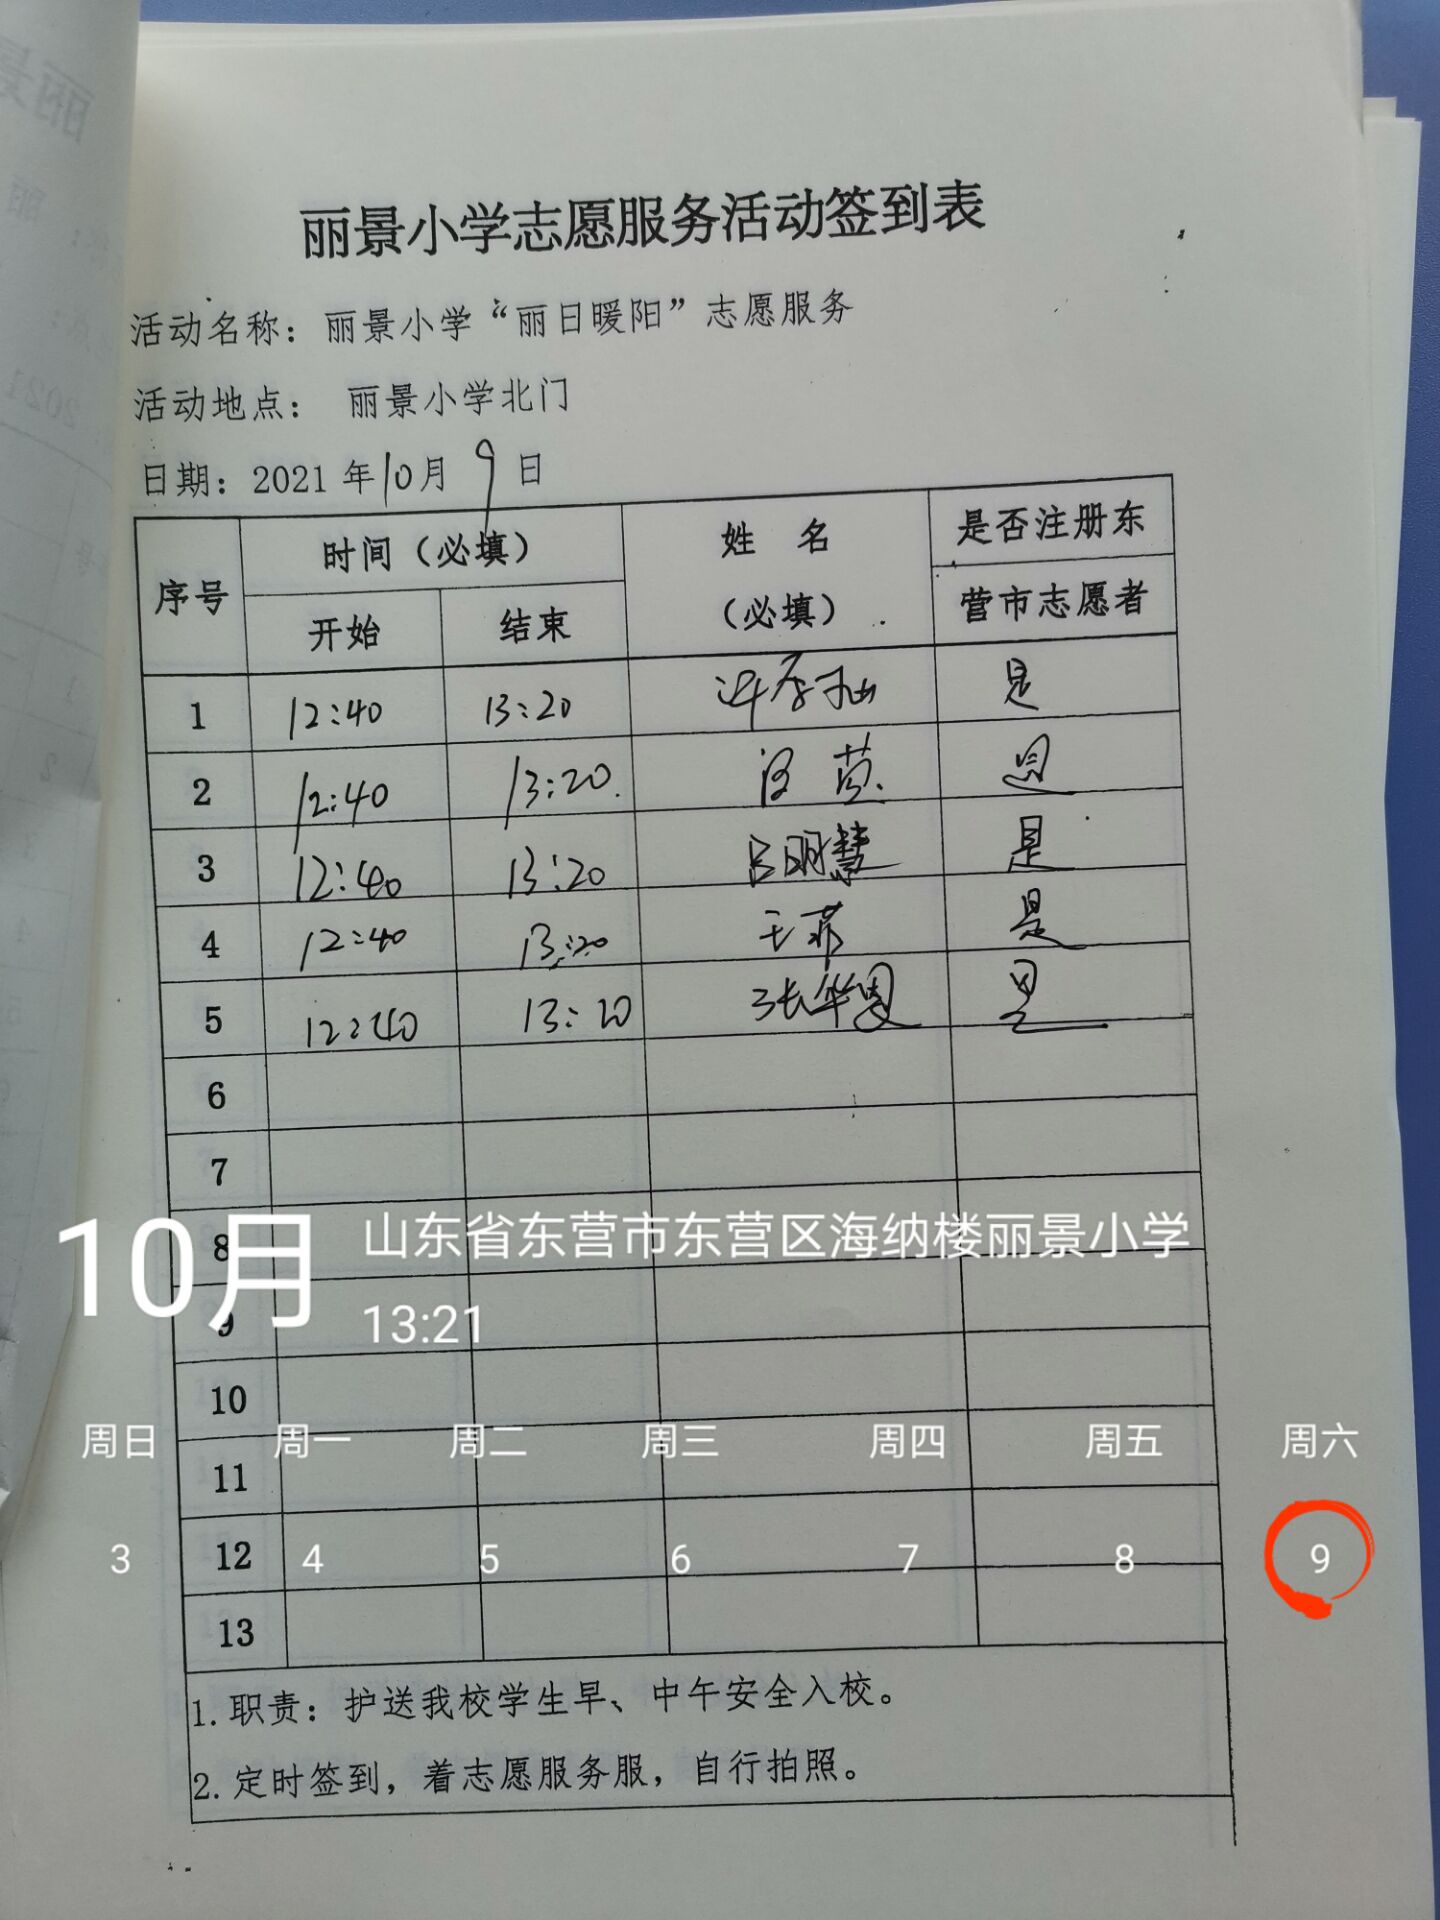 丽景小学志愿服务活动签到表
活动名称：丽景小学“丽日暖阳”志愿服务
活动地点： 丽景小学北门
日期：2021年10月9日
序号 时间（必填） 姓 名 （必填） 是否注册东
营市志愿者
开始 结束
1 12:40 13:20 是
2 12:40 13:20 是
3 12:40 13:20 吕明慧 是
4 12:40 13:20 王菲 是
5 12:40 13:20 张华夏 是
6
7
8
9
10
11
12
13
1. 职责：护送我校学生早、中午安全入校。
2. 定时签到，着志愿服务服，自行拍照。
10月
山东省东营市东营区海纳楼丽景小学
13:21
周日 周一 周二 周三 周四 周五 周六
3 4 5 6 7 8 9